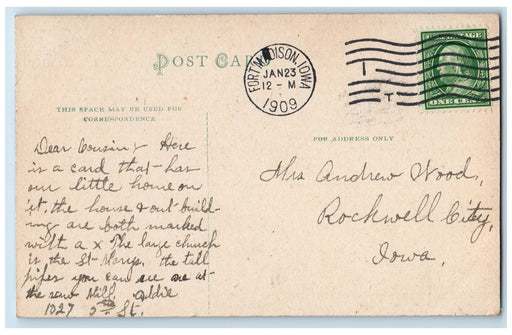 POST CARD
FORT MADISON, IOWA
JAN 23
12 - M
1909
1
T
U.S. POSTAGE
ONE CENT
THIS SPACE MAY BE USED FOR
CORRESPONDENCE
FOR ADDRESS ONLY
Dear Cousin; Here
is a card that has
our little home on
it, the house & out build-
ing are both marked
with a x The large church
is the St Marys. the tall
pipes you can see are at
the saw Mill. Addie
1027 5th St.
Mrs Andrew Wood,
Rockwell City,
Iowa,